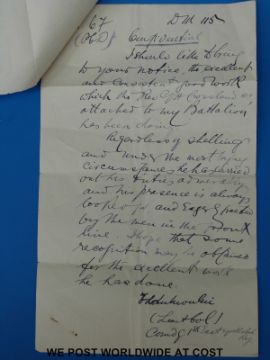 67 DM 115
Confidential
I should like to bring
to your notice, the excellent
and consistent good work
which the Rev
attached to my Battalion
has been doing.
Regardless of shelling
and under the most trying
circumstances he has carried
out his duties admirably
and his presence is always
looked for and eagerly greeted
by the men in the front
line. I hope that some
recognition may be obtained
for the excellent work
he has done.
(Lieut Col)
Comdg
WE POST WORLDWIDE AT COST